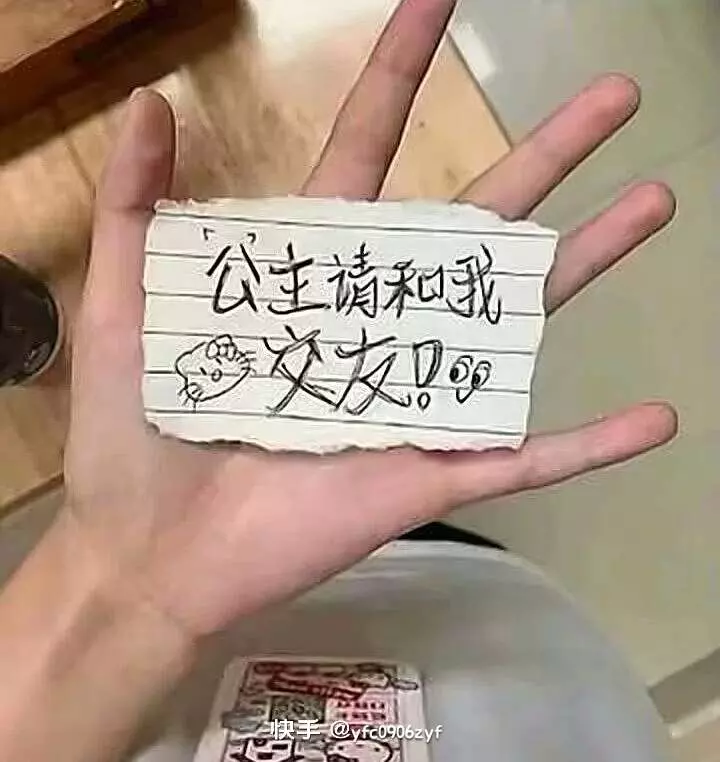 「公」主请和我
交友!
快手 @yfc0906zyf